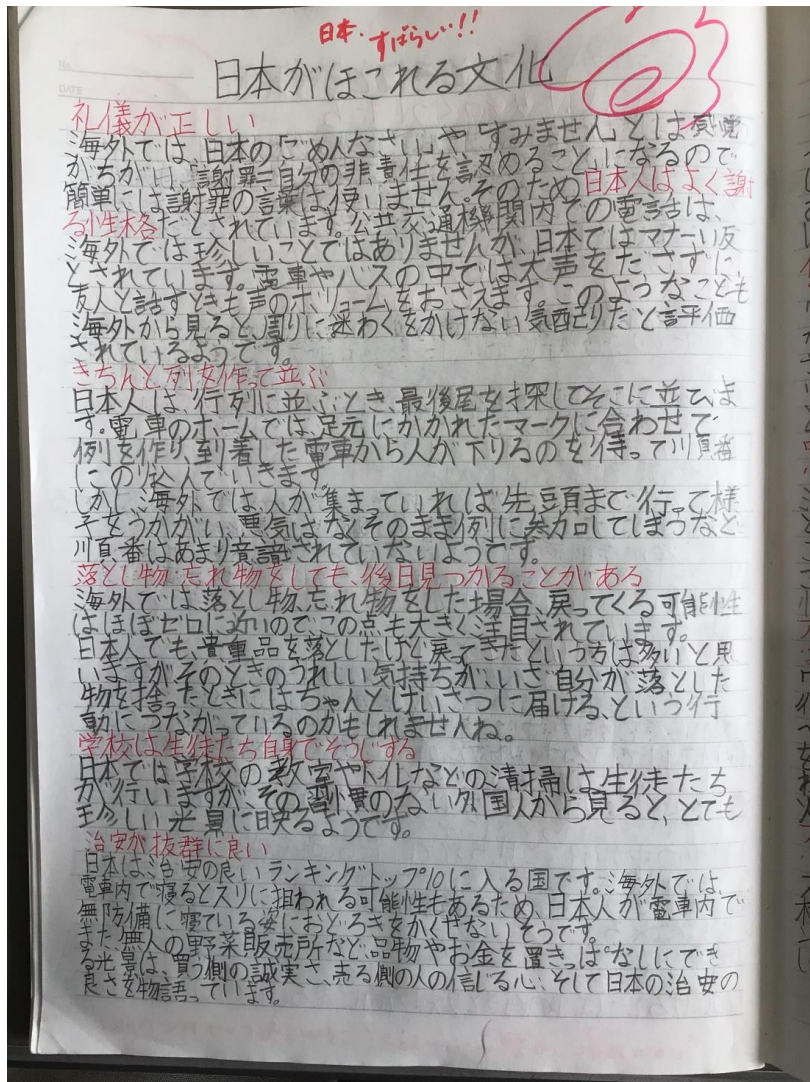 日本、すばらしい!!
No.
DATE
日本がほこれる文化
礼儀が正しい
海外では、日本の「ごめんなさい」や「すみません」とは感覚
がちがい、「謝罪=自分の非、責任を認めること」になるので
簡単には謝罪の言葉は使いません。そのため日本人はよく謝
る性格だとされています。公共交通機関内での電話は、
海外では珍しいことではありませんが、日本ではマナーい反
とされています。電車やバスの中では大声をださずに、
友人と話すときも声のボリュームをおさえます。このようなことも
海外から見ると、周りに迷わくをかけない気配りだと評価
されているようです。
きちんと列を作って並ぶ
日本人は、行列に並ぶとき、最後尾を探してそこに並びま
す。電車のホームでは、足元にかかれたマークに合わせて
列を作り、到着した電車から人が下りるのを待って順番
にのりこんでいきます。
しかし、海外では、人が集まっていれば先頭まで行って様
子をうかがい、悪気はなくそのまま列に参加してしまうなど
順番はあまり意識されていないようです。
落とし物・忘れ物をしても、後日見つかることがある
海外では、落とし物、忘れ物をした場合、戻ってくる可能性
はほぼゼロに近いのでこの点も大きく注目されています。
日本人でも、貴重品を落としたけど戻ってきたという方は多いと思
いますがそのときのうれしい気持ちが、いざ自分が落とした
物を捨ったときにはちゃんとけいさつに届ける、という行
動につながっているのかもしれませんね。
学校は生徒たち自身でそうじする
日本では学校の教室やトイレなどの清掃は、生徒たち
が行いますが、その習慣のない外国人から見ると、とても
珍しい光景に映るようです。
治安が抜群に良い
日本は治安の良いランキングトップ10に入る国です。海外では、
電車内で寝るとスリに狙われる可能性もあるため、日本人が電車内で
無防備に寝ている姿におどろきをかくせないそうです。
また、無人の野菜販売所など、品物やお金を置きっぱなしにでき
る光景は、買う側の誠実さ、売る側の人の信じる心、そして日本の治安の
良さを物語っています。